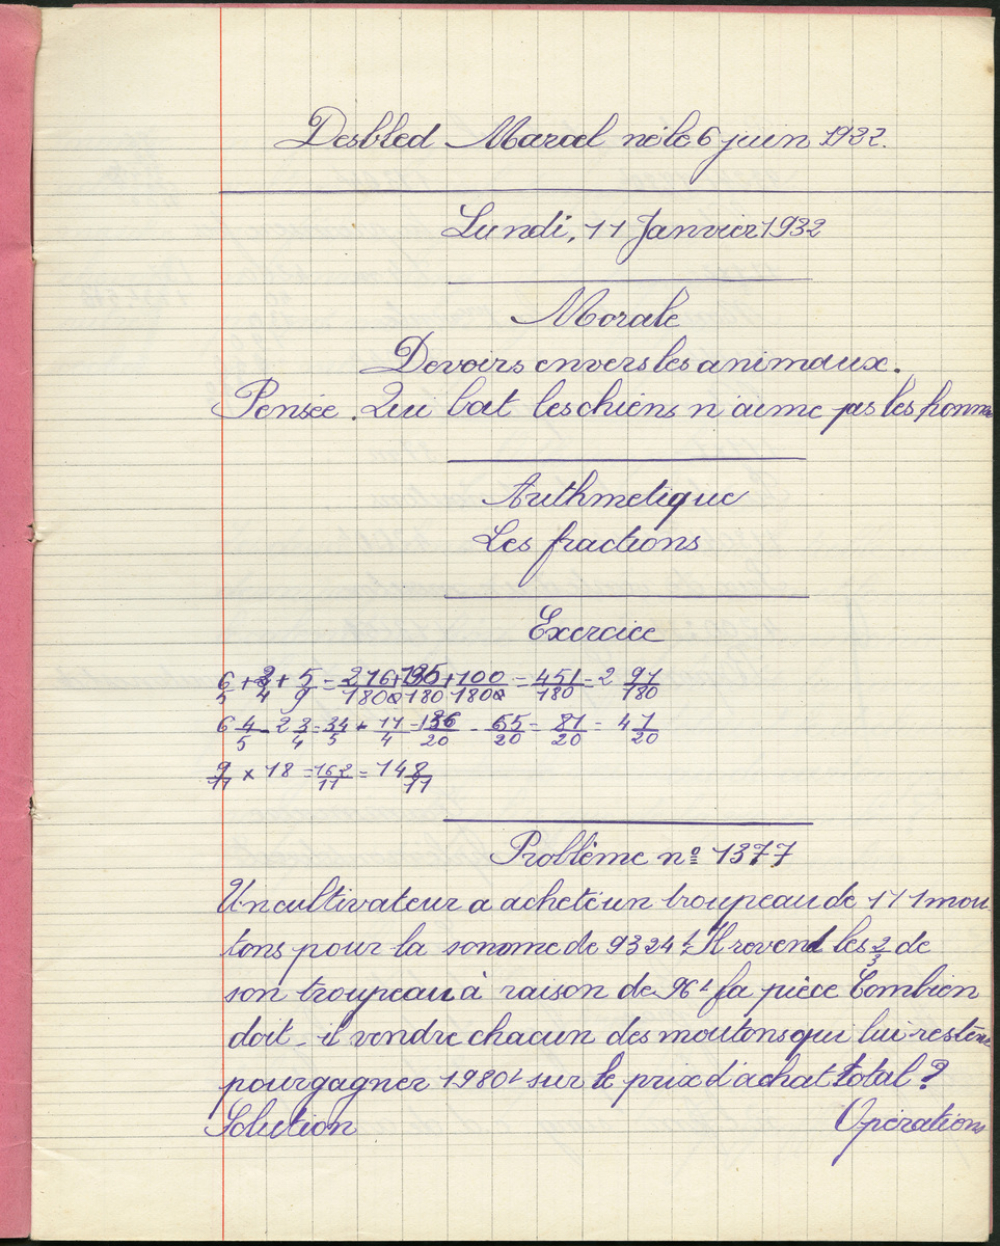 Desbled Marcel né le 6 juin 1922.
Lundi, 11 Janvier 1932
Morale
Devoirs envers les animaux.
Pensée. Qui bat les chiens n'aime pas les homm
Arithmetique
Les fractions
Exercice
6/5 + 3/4 + 5/9 = 216+135+100/180 180 180 = 451/180 = 2 91/180
6 4/5 - 2 3/4 = 34/5 - 11/4 = 136/20 - 55/20 = 81/20 = 4 1/20
9/11 × 18 = 162/11 = 14 8/11
Problème nº 1377
Un cultivateur a acheté un troupeau de 111 mou
tons pour la somme de 9324f Il revend les 2/3 de
son troupeau à raison de 96f la pièce Combien
doit-il vendre chacun des moutons qui lui resten
pour gagner 1980f sur le prix d'achat total ?
Solution Opérations